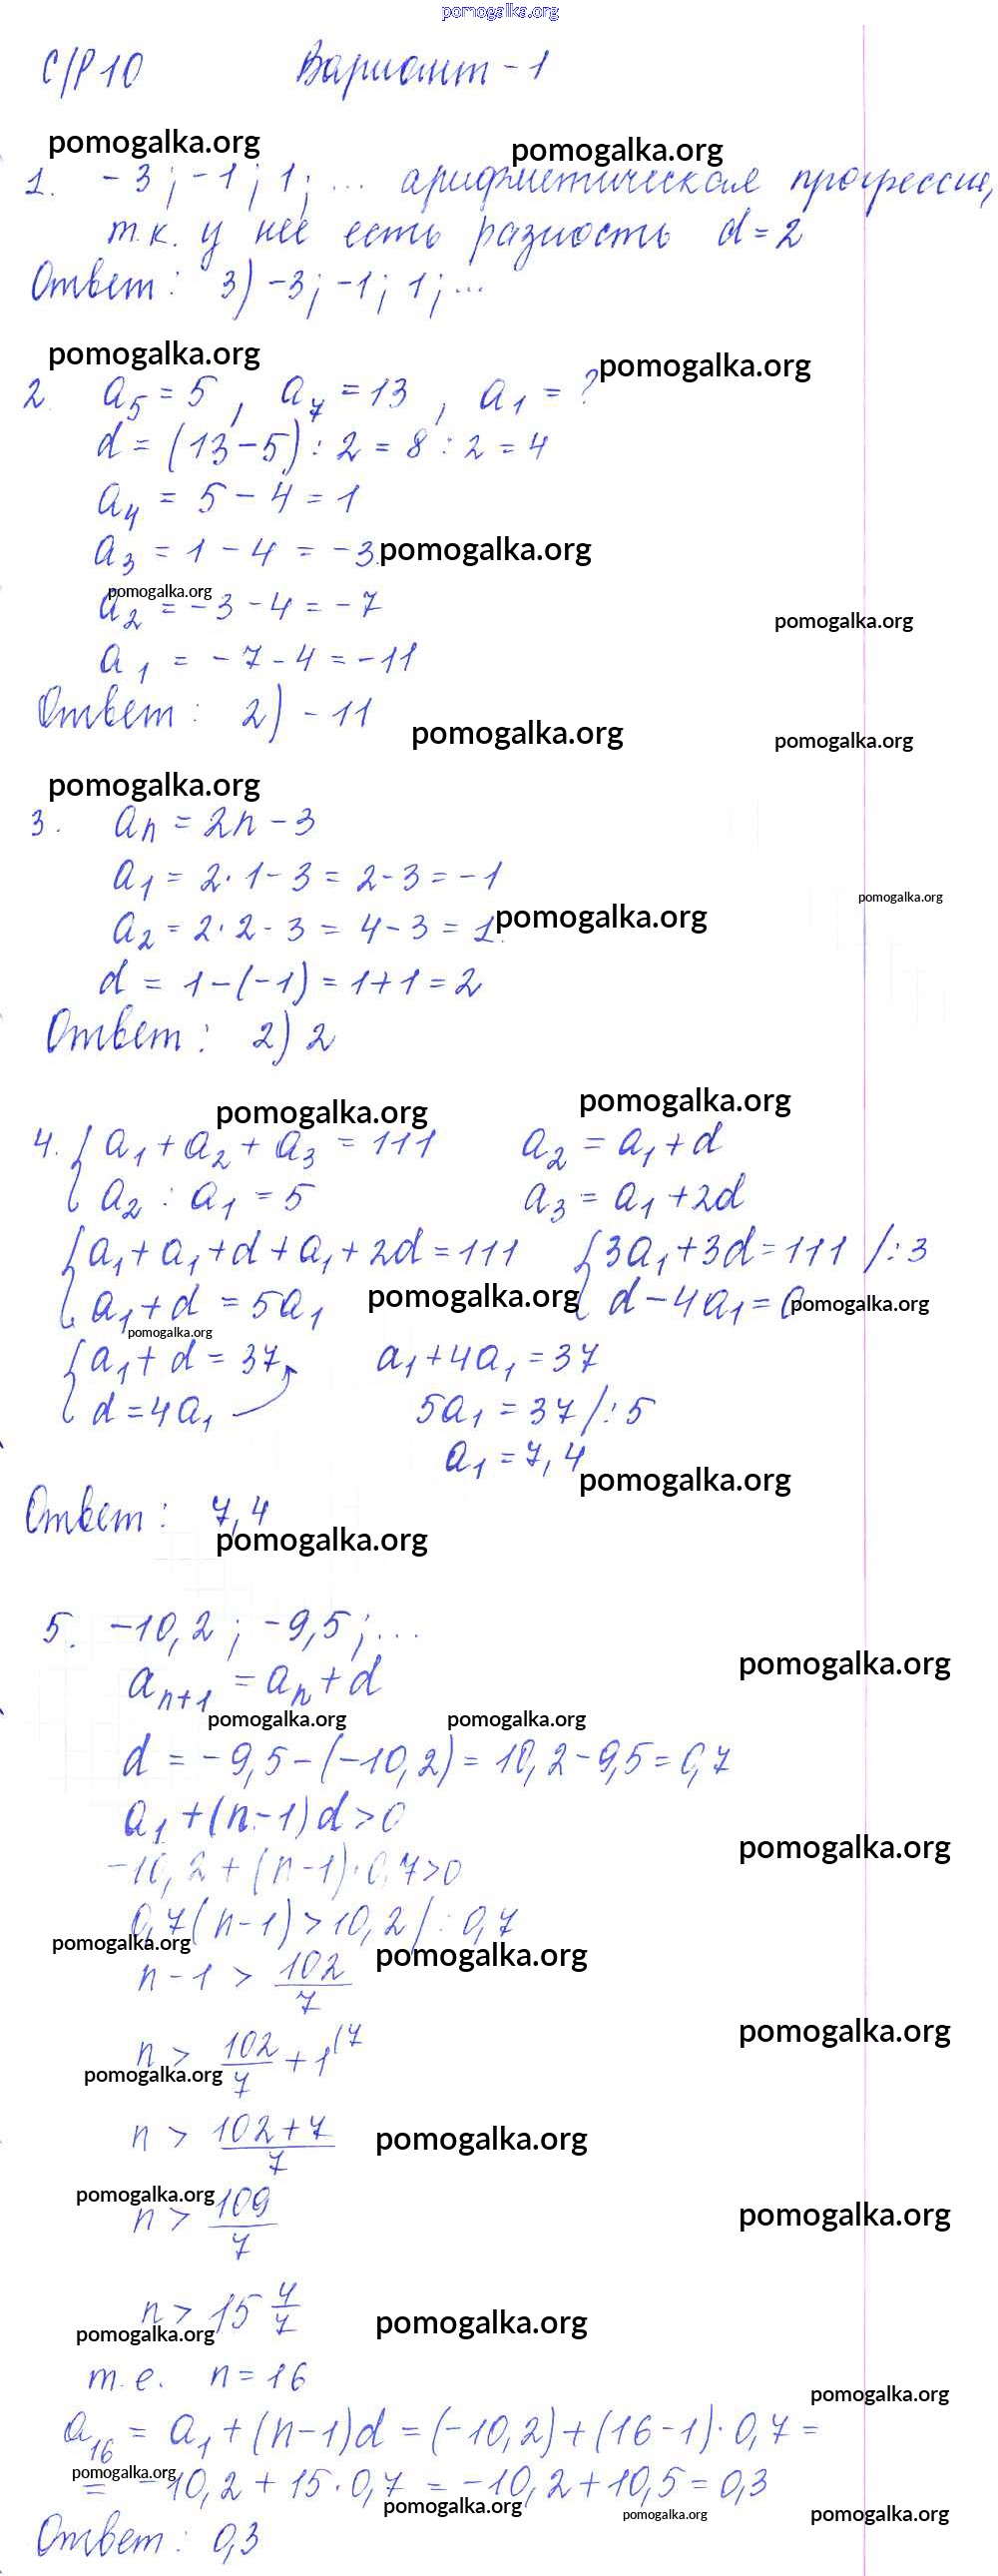 pomogalka.org
С/Р 10 Вариант - 1
pomogalka.org pomogalka.org
1. -3; -1; 1; ... арифметическая прогрессия,
т.к. у неё есть разность d = 2
Ответ: 3) -3; -1; 1; ...
pomogalka.org pomogalka.org
2. a₅ = 5, a₇ = 13, a₁ = ?
d = (13-5) : 2 = 8 : 2 = 4
a₄ = 5 - 4 = 1
a₃ = 1 - 4 = -3 pomogalka.org
pomogalka.org
a₂ = -3 - 4 = -7
pomogalka.org
a₁ = -7 - 4 = -11
Ответ: 2) -11
pomogalka.org pomogalka.org
pomogalka.org
3. aₙ = 2n - 3
a₁ = 2 · 1 - 3 = 2 - 3 = -1
pomogalka.org
a₂ = 2 · 2 - 3 = 4 - 3 = 1. pomogalka.org
d = 1 - (-1) = 1 + 1 = 2
Ответ: 2) 2
pomogalka.org pomogalka.org
4. { a₁ + a₂ + a₃ = 111 a₂ = a₁ + d
{ a₂ : a₁ = 5 a₃ = a₁ + 2d
{ a₁ + a₁ + d + a₁ + 2d = 111 { 3a₁ + 3d = 111 /: 3
{ a₁ + d = 5a₁ pomogalka.org { d - 4a₁ = 0 pomogalka.org
pomogalka.org
{ a₁ + d = 37 a₁ + 4a₁ = 37
{ d = 4a₁ 5a₁ = 37 /: 5
a₁ = 7,4
pomogalka.org
Ответ: 7,4
pomogalka.org
5. -10,2; -9,5; ...
pomogalka.org
aₙ₊₁ = aₙ + d
pomogalka.org pomogalka.org
d = -9,5 - (-10,2) = 10,2 - 9,5 = 0,7
a₁ + (n-1) d > 0
pomogalka.org
-10,2 + (n-1) · 0,7 > 0
0,7 (n-1) > 10,2 / : 0,7
pomogalka.org pomogalka.org
n - 1 > 102/7
pomogalka.org
n > 102/7 + 1 (7
pomogalka.org
n > (102+7)/7 pomogalka.org
pomogalka.org
n > 109/7 pomogalka.org
n > 15 4/7
pomogalka.org pomogalka.org
т.е. n = 16
pomogalka.org
a₁₆ = a₁ + (n-1)d = (-10,2) + (16-1) · 0,7 =
pomogalka.org
= -10,2 + 15 · 0,7 = -10,2 + 10,5 = 0,3
pomogalka.org pomogalka.org pomogalka.org
Ответ: 0,3